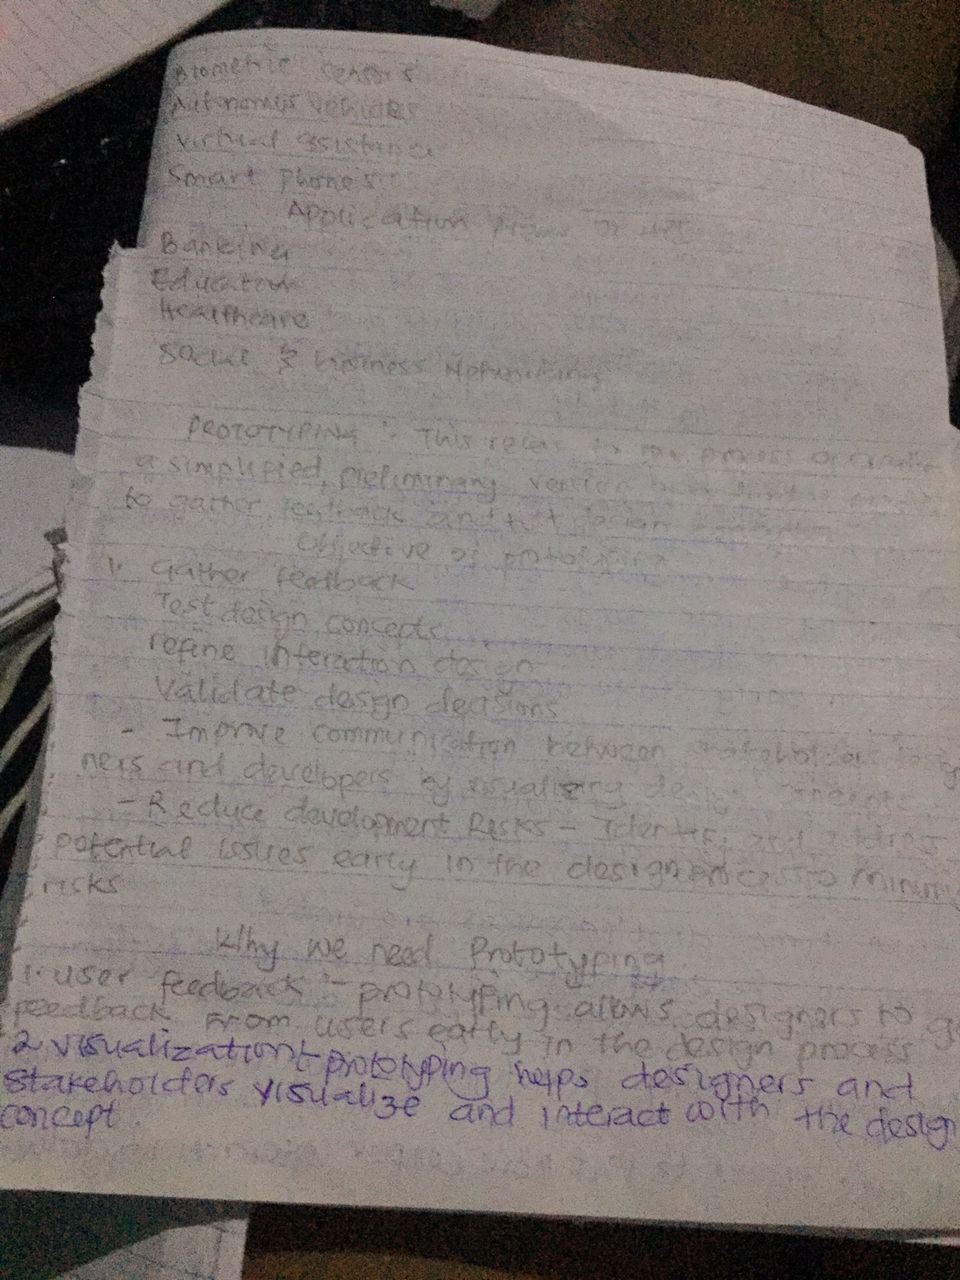 Biometric
Autonomus vehicles
Virtual assistance
Smart Phone's
Application
Banking
Education
Healthcare
Social & business Networking
PROTOTYPING :- This refers to the process of
a simplified, preliminary version
to gather feedback and test design
Objective of prototyping
1. Gather feedback
Test design concepts
refine interaction design
Validate design decisions
- Improve communication between
ners and developers by visualizing design concepts
- Reduce development Risks - Identify and address
potential issues early in the design process to
risks
Why we need Prototyping
1. user feedback :- prototyping allows designers to
feedback from users early in the design process
2 visualization :- prototyping helps designers and
stakeholders visualize and interact with the design
concept.